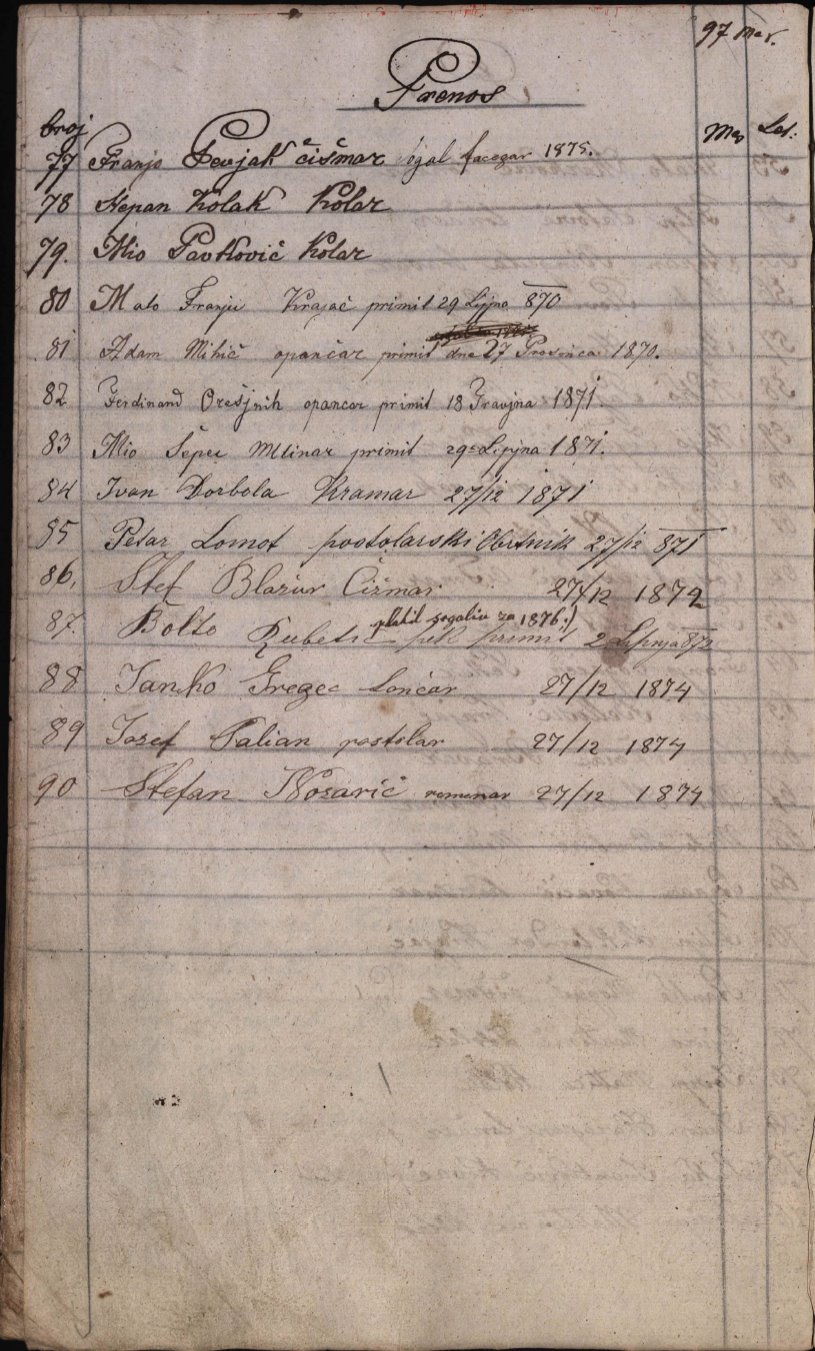 97 Mar.
Prenos
broj Mar Lat:
77 Franjo Sevjak čišmar igal facegar 1875.
78 Stepan Kolak Kolar
79. Mio Pavković Kolar
80 Mato Franju Krajač primit 29 Lipja 870
81 Adam Mihić opančar primit dne 27 Prosinca 1870.
82 Ferdinand Orešjnih opancar primit 18 Travjna 1871.
83 Mio Šepec Mlinar primit 29 Lipjna 1871.
84 Ivan Dorbola Kramar 27/12 1871
85 Petar Lomot postolarski Obrtnik 27/12 871
86. Štef Blažur Čižmar 27/12 1872
platil regaliu za 1876.)
87. Bolto Kubetić pek primit 2 Lipnja 872
88 Janko Gregec Lončar 27/12 1874
89 Jozef Palian postolar 27/12 1874
90 Stefan Nosarić remenar 27/12 1874